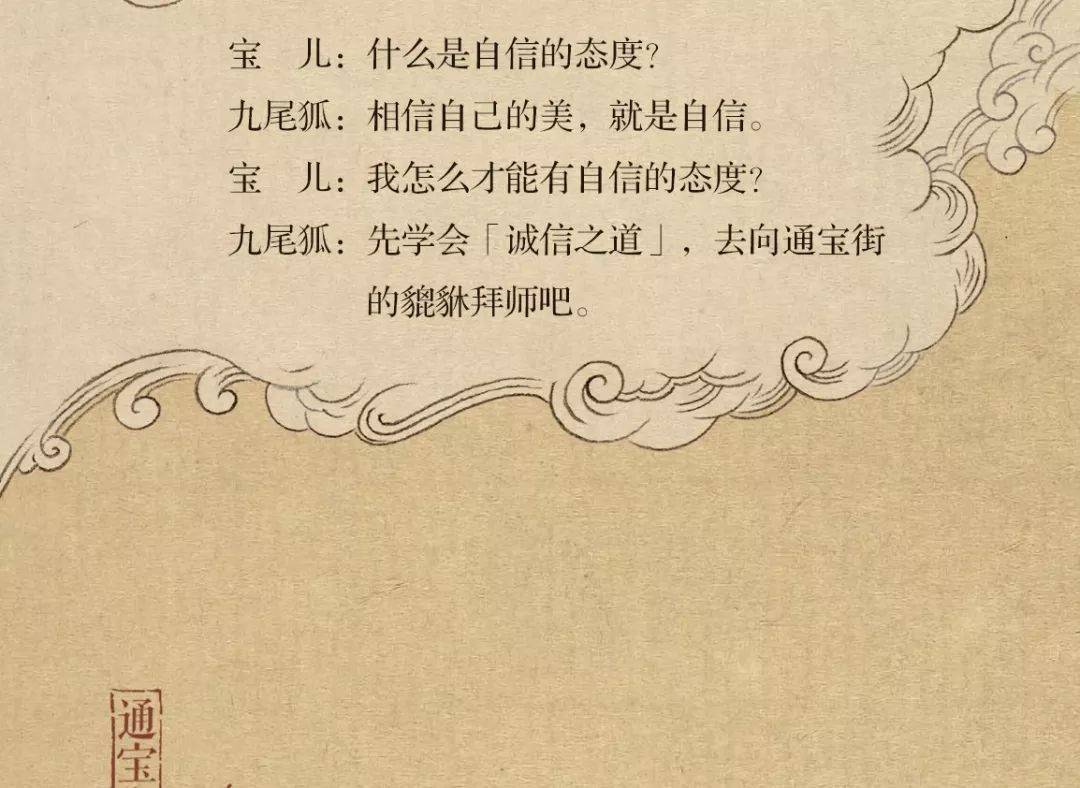 宝　儿：什么是自信的态度？
九尾狐：相信自己的美，就是自信。
宝　儿：我怎么才能有自信的态度？
九尾狐：先学会「诚信之道」，去向通宝街
的貔貅拜师吧。
通宝